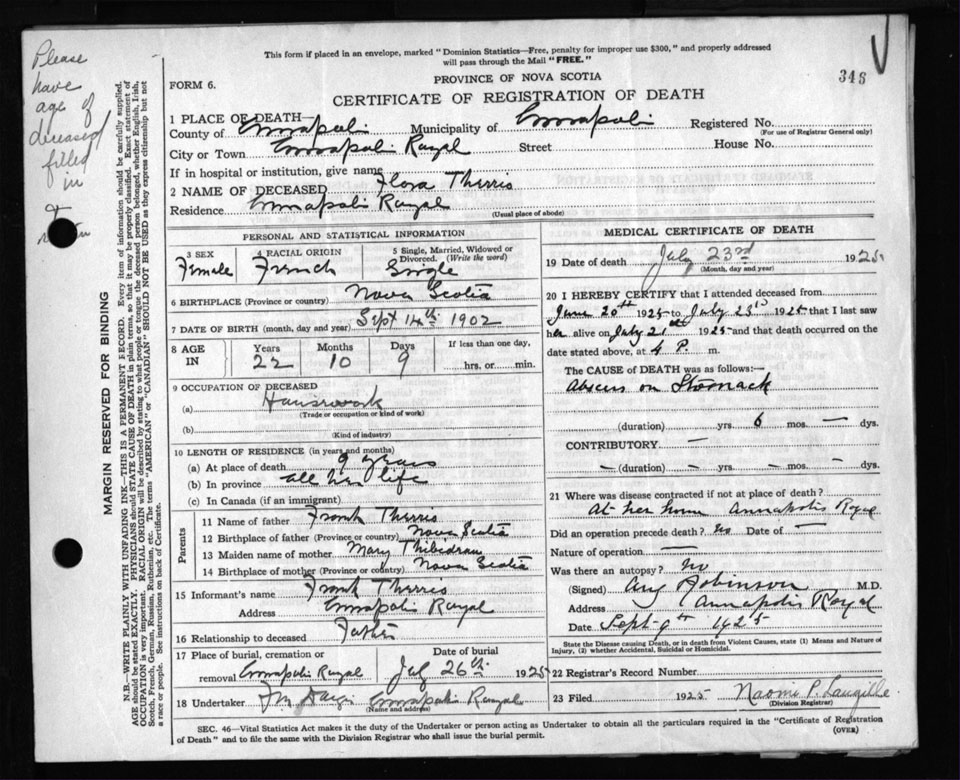 This form if placed in an envelope, marked "Dominion Statistics—Free, penalty for improper use $300," and properly addressed
will pass through the Mail "FREE."
PROVINCE OF NOVA SCOTIA
346
FORM 6.
CERTIFICATE OF REGISTRATION OF DEATH
Please
have
age of
deceased
filled
in
&
MARGIN RESERVED FOR BINDING
N.B.—WRITE PLAINLY WITH UNFADING INK—THIS IS A PERMANENT RECORD. Every item of information should be carefully supplied.
AGE should be stated EXACTLY. PHYSICIANS should STATE CAUSE OF DEATH in plain terms, so that it may be properly classified. Exact statement of
OCCUPATION is very important. RACIAL ORIGIN will be described by stating to what people or tongue the deceased person belonged, whether English, Irish,
Scotch, French, German, Russian, Ruthenian, etc. The terms "AMERICAN" or "CANADIAN" SHOULD NOT BE USED as they express citizenship but not
a race or people. See instructions on back of Certificate.
1 PLACE OF DEATH—
County of Annapolis Municipality of Annapolis Registered No.
(For use of Registrar General only)
City or Town Annapolis Royal Street House No.
If in hospital or institution, give name
2 NAME OF DECEASED Flora Therris
Residence Annapolis Royal
(Usual place of abode)
PERSONAL AND STATISTICAL INFORMATION
3 SEX 4 RACIAL ORIGIN 5 Single, Married, Widowed or Divorced. (Write the word)
Female French Single
6 BIRTHPLACE (Province or country) Nova Scotia
7 DATE OF BIRTH (month, day and year) Sept 14th 1902
8 AGE IN Years Months Days If less than one day,
22 10 9 hrs. or min.
9 OCCUPATION OF DECEASED
(a) Housework
(Trade or occupation or kind of work)
(b)
(Kind of industry)
10 LENGTH OF RESIDENCE (in years and months)
(a) At place of death 9 years
(b) In province all her life
(c) In Canada (if an immigrant)
Parents
11 Name of father Frank Therris
12 Birthplace of father (Province or country) Nova Scotia
13 Maiden name of mother Mary Thibedeau
14 Birthplace of mother (Province or country) Nova Scotia
15 Informant's name Frank Therris
Address Annapolis Royal
16 Relationship to deceased Father
17 Place of burial, cremation or removal Annapolis Royal Date of burial July 26th 1925
18 Undertaker Annapolis Royal
(Name and address)
MEDICAL CERTIFICATE OF DEATH
19 Date of death July 23rd 1925
(Month, day and year)
20 I HEREBY CERTIFY that I attended deceased from
June 20th 1925 to July 23rd 1925 that I last saw
her alive on July 21st 1925 and that death occurred on the
date stated above, at 4 P. m.
The CAUSE OF DEATH was as follows:—
Abscess on Stomack
(duration) yrs. 6 mos. — dys.
CONTRIBUTORY —
— (duration) — yrs. — mos. — dys.
21 Where was disease contracted if not at place of death?
At her home Annapolis Royal
Did an operation precede death? No Date of —
Nature of operation —
Was there an autopsy? No
(Signed) Robinson M.D.
Address Annapolis Royal
Date Sept. 9th 1925
State the Disease causing Death, or in death from Violent Causes, state (1) Means and Nature of
Injury, (2) whether Accidental, Suicidal or Homicidal.
22 Registrar's Record Number
23 Filed 1925 Naomi P. Langille
(Division Registrar)
SEC. 46—Vital Statistics Act makes it the duty of the Undertaker or person acting as Undertaker to obtain all the particulars required in the "Certificate of Registration
of Death" and to file the same with the Division Registrar who shall issue the burial permit.
(OVER)